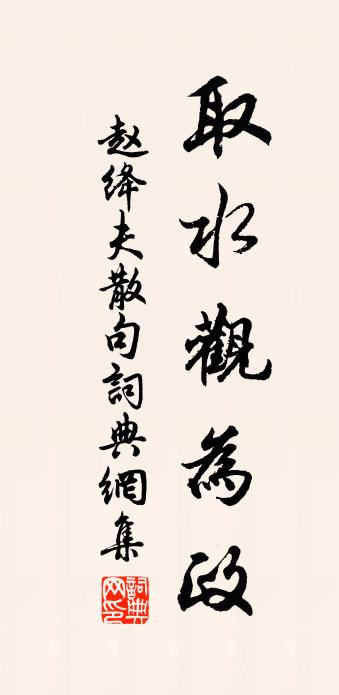 取水觀為政
赵絳夫散句詞典網集
詞典网印